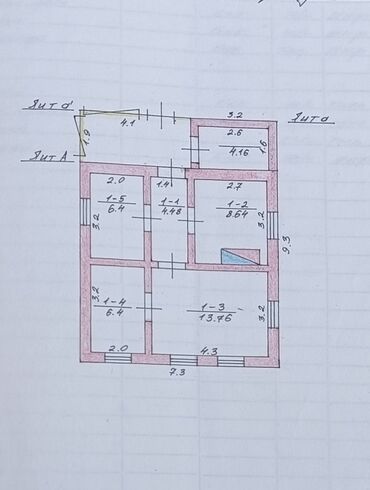 Лит а'
4.1
3.2
Лит а
1.9
2.6
4.16
1.6
Лит А
2.0
1.4
2.7
1-5
6.4
1-1
4.48
1-2
8.64
3.2
3.2
9.3
3.2
1-4
6.4
1-3
13.76
3.2
2.0
4.3
7.3